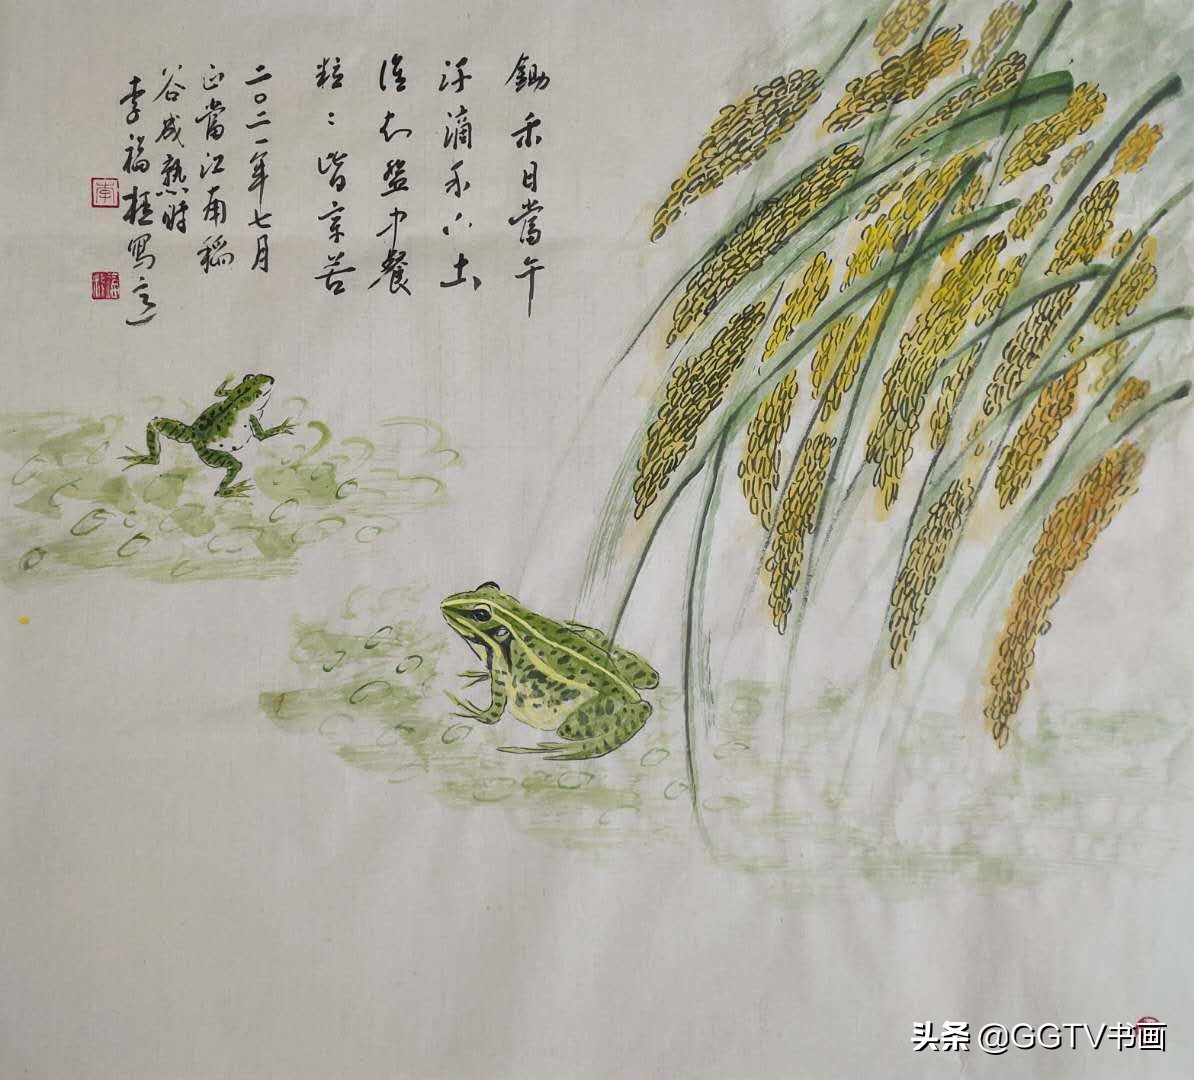 鋤禾日當午
汗滴禾下土
誰知盤中餐
粒〻皆辛苦
二〇二一年七月
正當江南稻
谷成熟時
李福桂寫意
李
头条 @GGTV书画